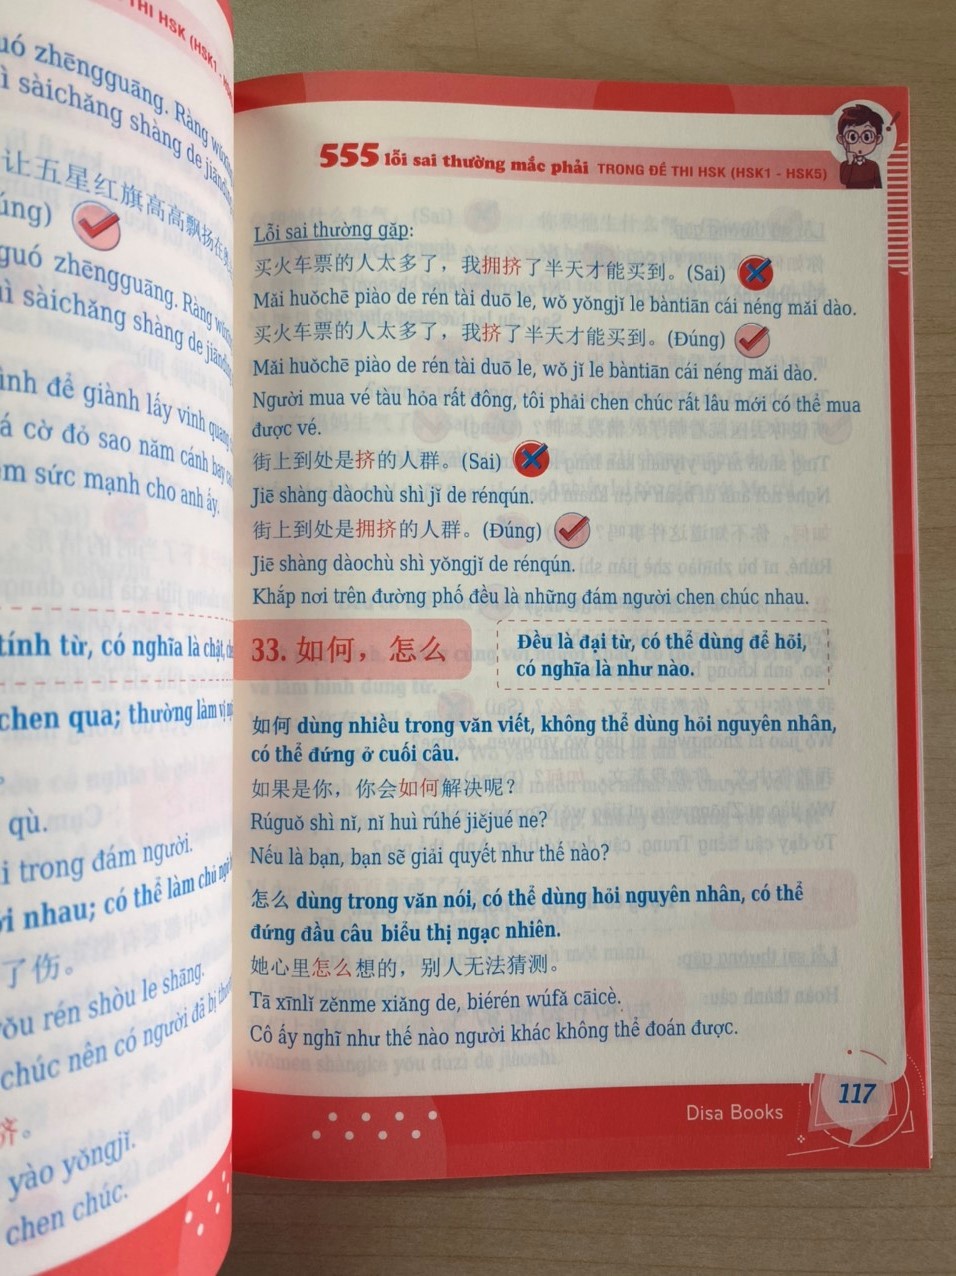 THI HSK (HSK1 -
uó zhēngguāng. Ràng
ì sàichǎng shàng de
让五星红旗高高飘扬在
úng)
guó zhēngguāng. Ràng
ì sàichǎng shàng de
ình để giành lấy vinh quang
á cờ đỏ sao năm cánh bay
m sức mạnh cho anh ấy.
tính từ, có nghĩa là chật,
chen qua; thường làm vị
qù.
i trong đám người.
i nhau; có thể làm chủ ngữ
了伤。
ǒu rén shòu le shāng.
chúc nên có người đã bị
挤。
yào yǒngjǐ.
chen chúc.
555 lỗi sai thường mắc phải TRONG ĐỀ THI HSK (HSK1 - HSK5)
Lỗi sai thường gặp:
买火车票的人太多了，我拥挤了半天才能买到。(Sai)
Mǎi huǒchē piào de rén tài duō le, wǒ yǒngjǐ le bàntiān cái néng mǎi dào.
买火车票的人太多了，我挤了半天才能买到。(Đúng)
Mǎi huǒchē piào de rén tài duō le, wǒ jǐ le bàntiān cái néng mǎi dào.
Người mua vé tàu hỏa rất đông, tôi phải chen chúc rất lâu mới có thể mua
được vé.
街上到处是挤的人群。(Sai)
Jiē shàng dàochù shì jǐ de rénqún.
街上到处是拥挤的人群。(Đúng)
Jiē shàng dàochù shì yǒngjǐ de rénqún.
Khắp nơi trên đường phố đều là những đám người chen chúc nhau.
33. 如何，怎么
Đều là đại từ, có thể dùng để hỏi,
có nghĩa là như nào.
如何 dùng nhiều trong văn viết, không thể dùng hỏi nguyên nhân,
có thể đứng ở cuối câu.
如果是你，你会如何解决呢？
Rúguǒ shì nǐ, nǐ huì rúhé jiějué ne?
Nếu là bạn, bạn sẽ giải quyết như thế nào?
怎么 dùng trong văn nói, có thể dùng hỏi nguyên nhân, có thể
đứng đầu câu biểu thị ngạc nhiên.
她心里怎么想的，别人无法猜测。
Tā xīnlǐ zěnme xiǎng de, biérén wúfǎ cāicè.
Cô ấy nghĩ như thế nào người khác không thể đoán được.
Disa Books
117